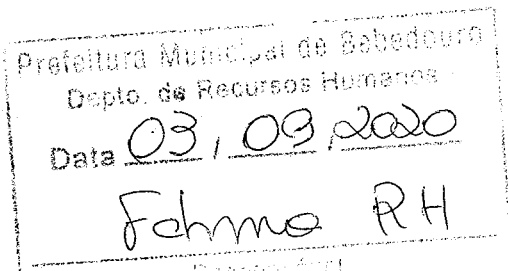 Prefeitura Municipal de Bebedouro
Depto. de Recursos Humanos
Data 03, 09, 2020
RH